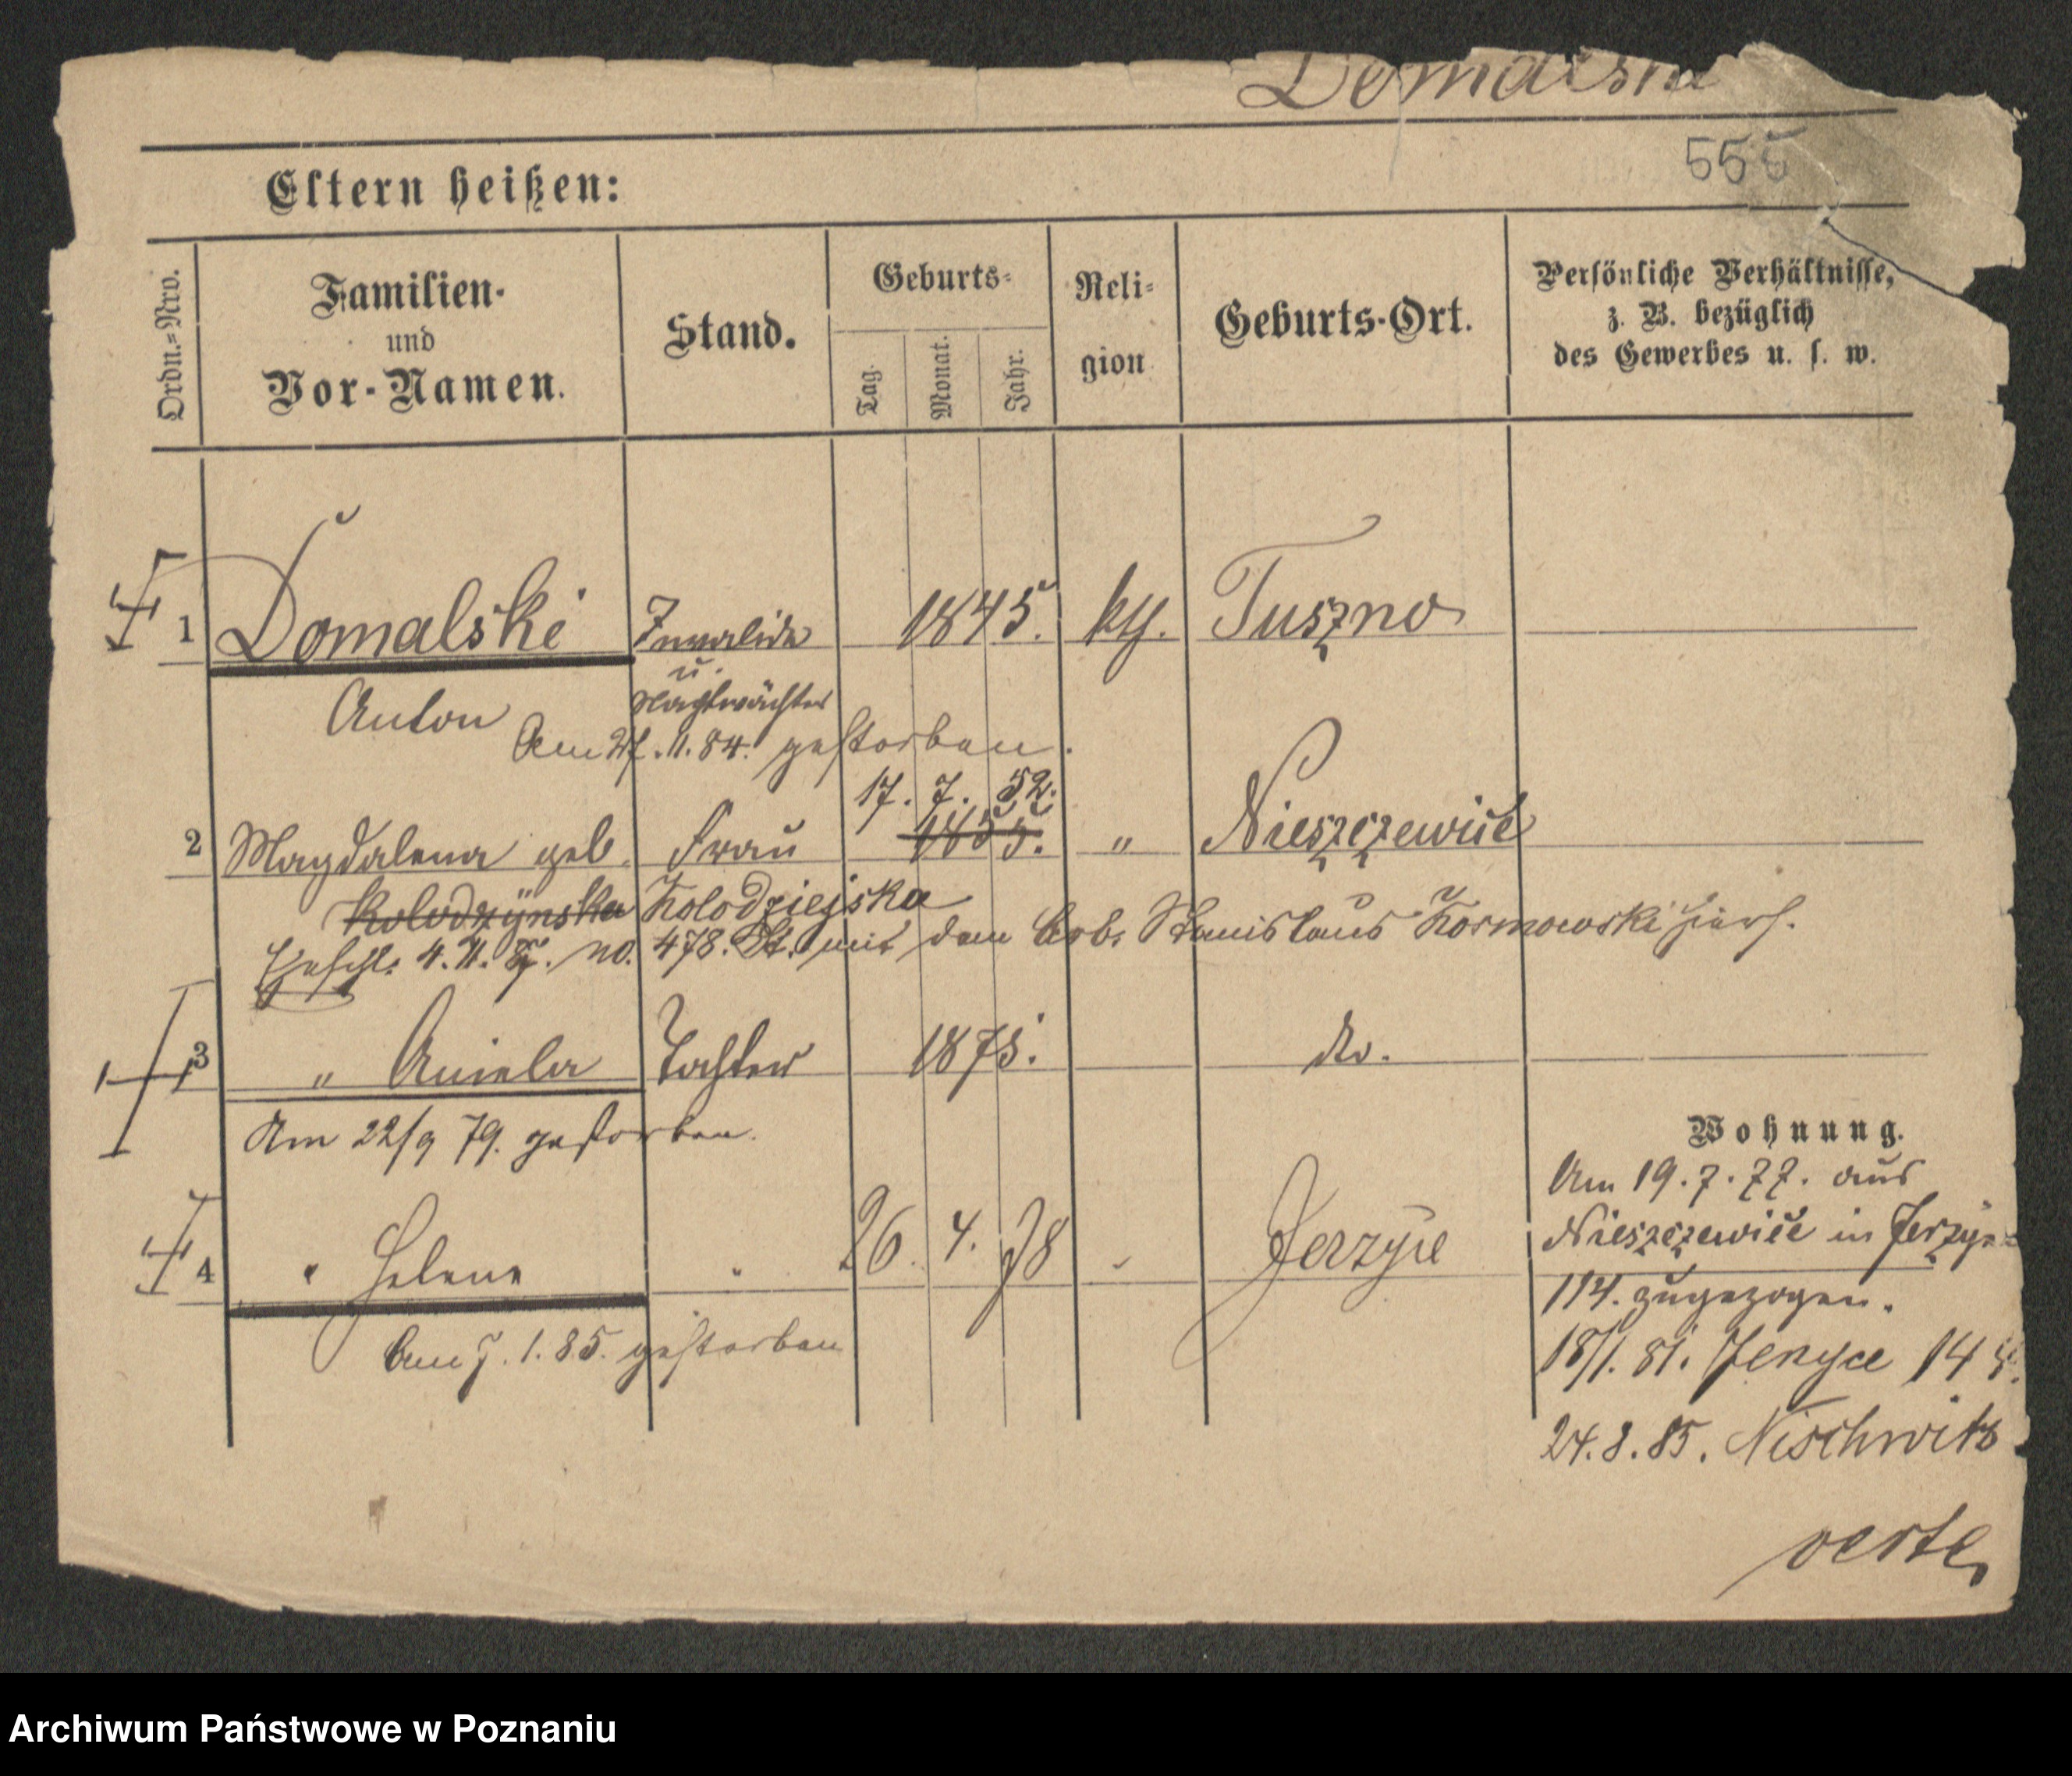 Domalski
555
Eltern heißen:
Ordn.-Nro.
Familien-
und
Vor-Namen.
Stand.
Geburts-
Tag.
Monat.
Jahr.
Reli-
gion
Geburts-Ort.
Persönliche Verhältnisse,
z. B. bezüglich
des Gewerbes u. s. w.
1 Domalski Invalide 1845. kth. Tuszno
u.
Anton Nachtwächter
Am 27.11.84. gestorben.
17. 7. 52.
2 Magdalena geb. Frau 1855. " Nieszczewice
Kolodzÿnska Kolodziejska
Geschl. 4.11. no. 478. St. mit dem Arb. Stanislaus Kosmowski hiers.
3 " Aniela Tochter 1875. do.
Am 22/9 79. gestorben.
4 " Helene " 26. 4. 78 " Jerzyce
Am 7. 1. 85. gestorben
Wohnung.
Am 19. 7. 77. aus
Nieszczewice in Jerzyce
114. zugezogen.
18/1. 81. Jerzyce 14
24. 8. 85. Nischwitz
verte
Archiwum Państwowe w Poznaniu